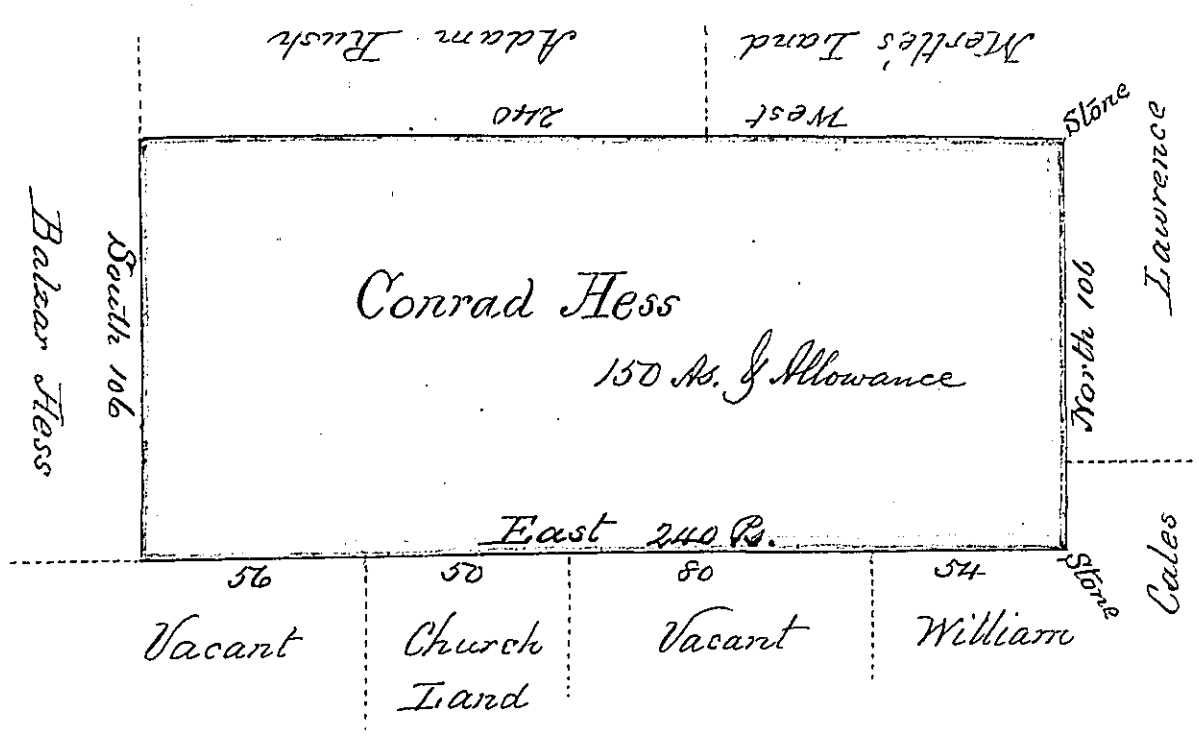 Adam Rush
Mertle's Land
240
West
Stone
Lawrence
Balzar Hess
South 106
Conrad Hess
150 As. & Allowance
North 106
East 240 Ps.
Stone
Cales
56
50
80
54
Vacant
Church
Land
Vacant
William